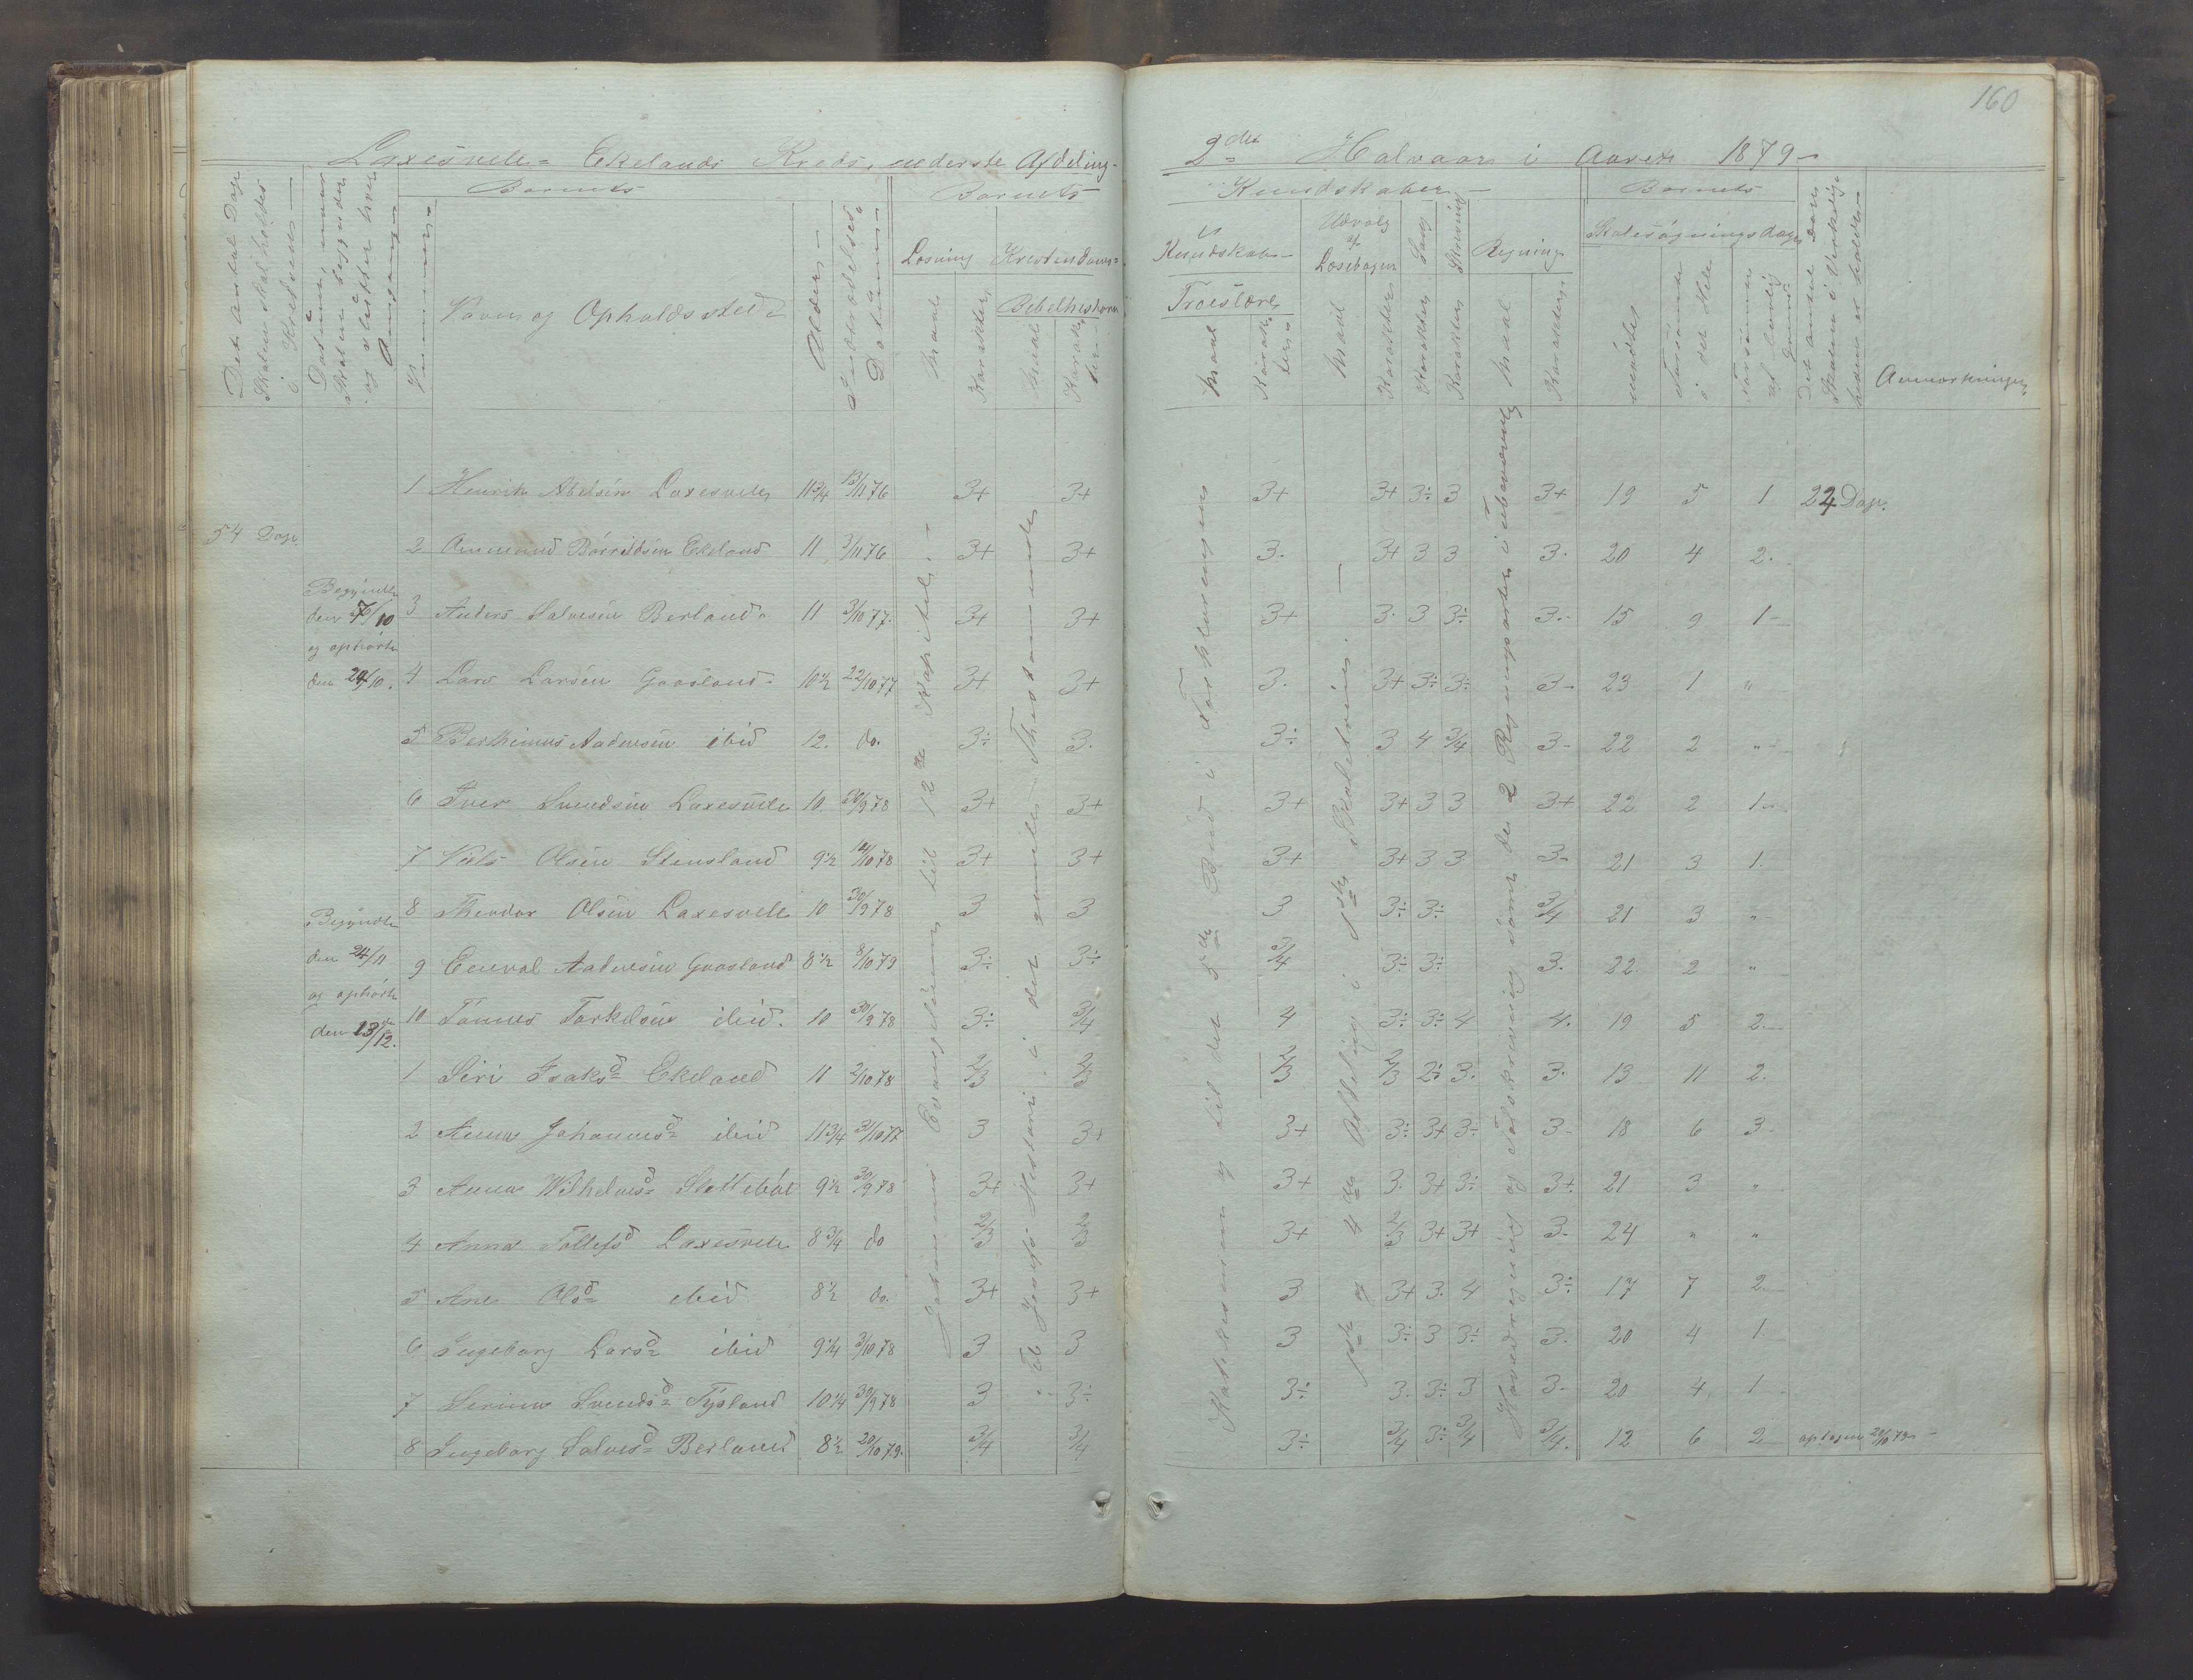 160
Laxesvele- Ekelands Kreds, nederste Afdeling-
2det Halvaar i Aaret 1879-
Det Antal Dage Skolen skal holdes i Kredsen
Datum, naar Skolen begynder og slutter hver Omgang
Barnets
Nummer
Navn og Opholdssted
Alder
Indtrædelses Datum
Barnets
Læsning
Maal
Karakter
Kristendoms-
Bibelhistorie
Maal
Karakter
Kundskaber
Kundskab
Troeslære
Maal
Karakter
Udvalg af Læsebogen
Maal
Karakter
Sang
Karakter
Skrivning
Karakter
Regning
Maal
Karakter
Barnets
Skolesøgningsdage
mødte
forsømte i det Hele
forsømte af lovlig Grund
Det Antal Dage Skolen i Virkelighed er holdt
Anmærkninger
54 Dage
Begyndte
den 7/10
og ophørte
den 29/10.
Begyndte
den 24/11
og ophørte
den 13/12.
Johannes Evangelium til 12te Kapitel
Fb. Josefs Historie i det gamle Thestamente
Katekismen og til det 5de Bud i Forklaringen
1ste og 4de Afdeling i 1ste Skoletrin.
Hovedregning og Tavleregning samt de 2 Regningsarter i Ubenævnte
1 Henrik Abelsen Laxesvele 11 3/4 13/11 76 3+ 3+ 3+ 3+ 3÷ 3 3+ 19 5 1 24 Dage.
2 Ommund Børrildsen Ekeland 11 3/11 76 3+ 3+ 3. 3+ 3 3 3. 20 4 2.
3 Anders Salvesen Berland 11 3/10 77. 3+ 3+ 3+ 3. 3 3÷ 3.- 15 9 1-
4 Lars Larsen Gaasland 10 1/2 22/10 77 3+ 3+ 3. 3+ 3÷ 3÷ 3- 23 1 "
5 Berthinus Aadnesen ibid 12. do. 3÷ 3. 3÷ 3 4 3/4 3- 22 2 "
6 Iver Svendsen Laxesvele 10. 30/9 78 3+ 3+ 3+ 3+ 3 3 3+ 22 2 1-
7 Niels Olsen Stensland 9 1/2 14/10 78 3+ 3+ 3+ 3+ 3 3 3- 21 3 1.
8 Theodor Olsen Laxesvele 10 30/9 78 3 3 3 3÷ 3÷ 3/4 21 3 "
9 Eneval Aadnesen Gaasland 8 1/2 8/10 79 3÷ 3÷ 3/4 3÷ 3÷ 3. 22. 2 "
10 Tønnes Torkelsen ibid. 10 30/9 78 3÷ 3/4 4 3÷ 3÷ 4 4. 19 5 2.
1 Siri Isaksd Ekeland 11 2/10 78 2/3 2/3 2/3 2/3 2÷ 3. 3. 13 11 2.
2 Anna Johannesd ibid 11 3/4 31/10 77 3 3+ 3+ 3÷ 3+ 3÷ 3- 18 6 3-
3 Anna Wilhelmsd Slettebøe 9 1/2 30/9 78 3+ 3+ 3+ 3. 3+ 3÷ 3+ 21 3 "
4 Anna Tollefsd Laxesvele 8 3/4 do 2/3 2/3 3+ 2/3 3+ 3+ 3- 24 " "
5 Ane Olsd ibid 8 1/2 do. 3+ 3+ 3 3+ 3. 4 3÷ 17 7 2.
6 Ingeborg Larsd ibid 9 1/4 3/10 78 3 3 3 3÷ 3 3÷ 3. 20 4 1
7 Serine Svendsd Tysland 10 1/4 30/9 78 3 3÷ 3÷ 3. 3÷ 3 3- 20 4 1
8 Ingeborg Salvesd Berland 8 1/2 20/10 79. 3/4 3/4 3÷ 3/4 3÷ 3/4 3/4. 12 6 2 optagen 20/10 79